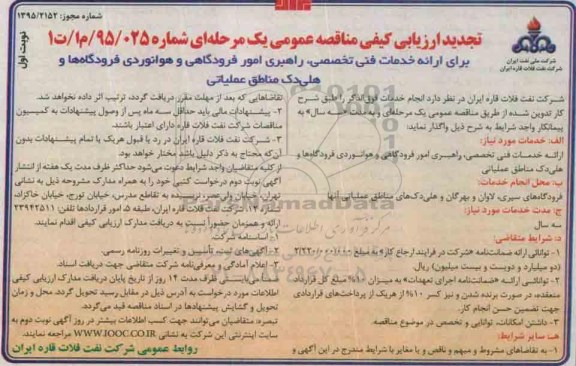 شماره مجوز: ۱۳۹۵/۲۱۵۲
نوبت اول
شرکت ملی نفت ایران
شرکت نفت فلات قاره ایران
تجدید ارزیابی کیفی مناقصه عمومی یک مرحله‌ای شماره ۹۵/۰۲۵/م۱/ت۱
برای ارائه خدمات فنی تخصصی، راهبری امور فرودگاهی و هوانوردی فرودگاه‌ها و
هلی‌دک مناطق عملیاتی
شرکت نفت فلات قاره ایران در نظر دارد انجام خدمات فوق‌الذکر را طبق شرح
کار تدوین شده از طریق مناقصه عمومی یک مرحله‌ای و به مدت «سه سال» به
پیمانکار واجد شرایط به شرح ذیل واگذار نماید:
الف: خدمات مورد نیاز:
ارائه خدمات فنی تخصصی، راهبری امور فرودگاهی و هوانوردی فرودگاه‌ها و
هلی‌دک مناطق عملیاتی
ب: محل انجام خدمات:
فرودگاه‌های سیری، لاوان و بهرگان و هلی‌دک‌های مناطق عملیاتی آنها
ج: مدت خدمات مورد نیاز:
سه سال
د: شرایط متقاضی:
۱- توانائی ارائه ضمانت‌نامه «شرکت در فرایند ارجاع کار» به مبلغ
(دو میلیارد و دویست و بیست میلیون) ریال.
۲- توانائی ارائه «ضمانت‌نامه اجرای تعهدات» به میزان ۱۰% مبلغ کل قرارداد
منعقده، در صورت برنده شدن و نیز کسر ۱۰% از هریک از پرداخت‌های قراردادی
جهت تضمین حسن انجام کار.
۳- داشتن امکانات، توانایی و تخصص در موضوع مناقصه.
هـ: سایر شرایط:
۱- به تقاضاهای مشروط و مبهم و ناقص و یا مغایر با شرایط مندرج در این آگهی و
تقاضاهایی که بعد از مهلت مقرر دریافت گردد، ترتیب اثر داده نخواهد شد.
۲- پیشنهادات مالی باید حداقل سه ماه پس از وصول پیشنهادات به کمیسیون
مناقصات شرکت نفت فلات قاره دارای اعتبار باشند.
۳- شرکت نفت فلات قاره ایران در رد یا قبول هریک یا تمام پیشنهادات بدون
آن‌که محتاج به ذکر دلیل باشد مختار خواهد بود.
از کلیه متقاضیان واجد شرایط دعوت می‌شود حداکثر ظرف مدت یک هفته از انتشار
آگهی نوبت دوم درخواست کتبی خود را به همراه مدارک مشروحه ذیل به نشانی
تهران، خیابان ولی‌عصر، نرسیده به تقاطع مدرس، خیابان تورج، خیابان خاکزاد،
شماره ۱۲، شرکت نفت فلات قاره ایران، طبقه ۵، امور قراردادها تلفن: ۲۳۹۴۲۵۱۱
ارائه و همزمان حضوراً نسبت به دریافت مدارک ارزیابی کیفی اقدام نمایند.
۱- اساسنامه شرکت
۲- آگهی‌های ثبت، تأسیس و تغییرات روزنامه رسمی.
۳- اعلام آمادگی و معرفی‌نامه شرکت متقاضی جهت دریافت اسناد.
ضمناً می‌بایستی ظرف مدت ۱۴ روز از تاریخ پایان دریافت مدارک ارزیابی کیفی
اطلاعات مورد درخواست به آدرس ذیل در مقابل رسید تحویل گردد. محل و زمان
تحویل و گشایش پیشنهادها در اسناد مناقصه قید می‌گردد.
تبصره: متقاضیان می‌توانند جهت کسب اطلاعات بیشتر در روز آگهی نوبت دوم به
سایت اینترنتی این شرکت به نشانی WWW.IOOC.CO.IR مراجعه نمایند.
روابط عمومی شرکت نفت فلات قاره ایران